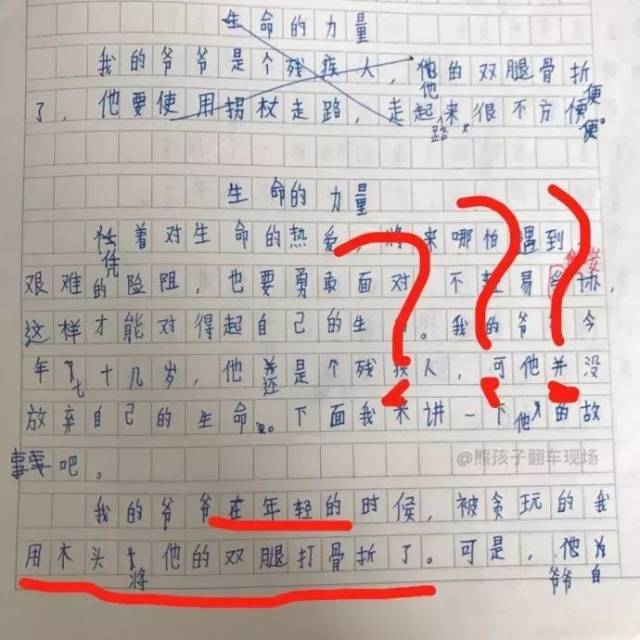 生命的力量
我的爷爷是个残疾人，他的双腿骨折
他 便
了，他要使用拐杖走路，走起来很不方便。
路 便
生命的力量
着对生命的热爱，将来哪怕遇到
凭
艰难的险阻，也要勇敢面对，不轻易
这样才能对得起自己的生。我的爷今
年七十几岁，他还是个残疾人，可他并没
放弃自己的生命。下面我来讲一下他的故
@熊孩子翻车现场
事吧。
我的爷爷在年轻的时候，被贪玩的我
用木头将他的双腿打骨折了。可是，他为
爷爷自